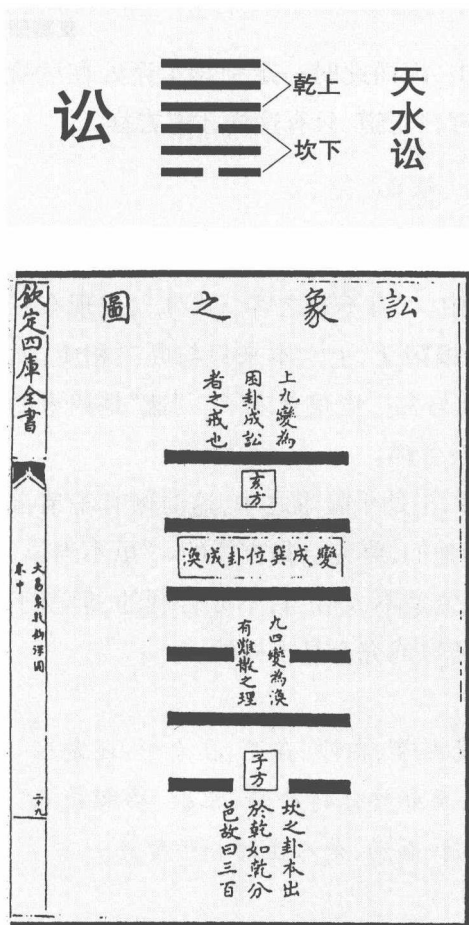 讼
乾上
坎下
天水讼
訟象之圖
上九變為
困卦成訟
者之戒也
亥方
變成巽位卦成渙
九四變為渙
有難散之理
子方
坎之卦本出
於乾如乾分
邑故曰三百
欽定四庫全書
大易象數鉤深圖
卷中
二十九